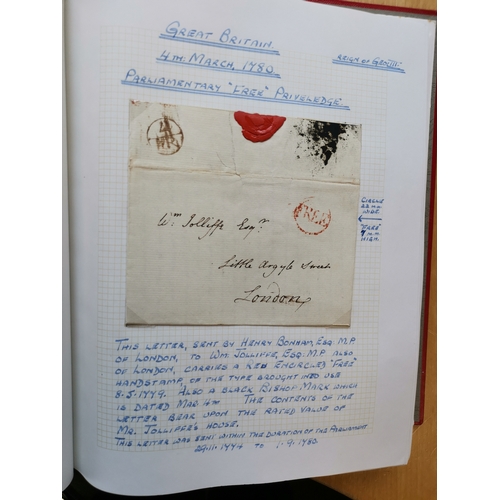 GREAT BRITAIN.
4TH. MARCH, 1780.
REIGN OF GEO III.
PARLIAMENTARY "FREE" PRIVELEDGE.
4
MR
FREE
CIRCLE
22 M.M.
WIDE
"FREE"
7 M.M.
HIGH.
Wm. Jolliffe Esqr.
Little Argyle Street
London
THIS LETTER, SENT BY HENRY BONHAM, ESQ. M.P.
OF LONDON, TO WM. JOLLIFFE, ESQ. M.P. ALSO
OF LONDON, CARRIES A RED ENCIRCLED "FREE"
HANDSTAMP, OF THE TYPE BROUGHT INTO USE
ALSO A BLACK BISHOP MARK WHICH
IS DATED MAR. 4TH. THE CONTENTS OF THE
LETTER BEAR UPON THE RATED VALUE OF
MR. JOLLIFFE'S HOUSE.
THIS LETTER WAS SENT WITHIN THE DURATION OF THE PARLIAMENT.
TO 1.9.1780.